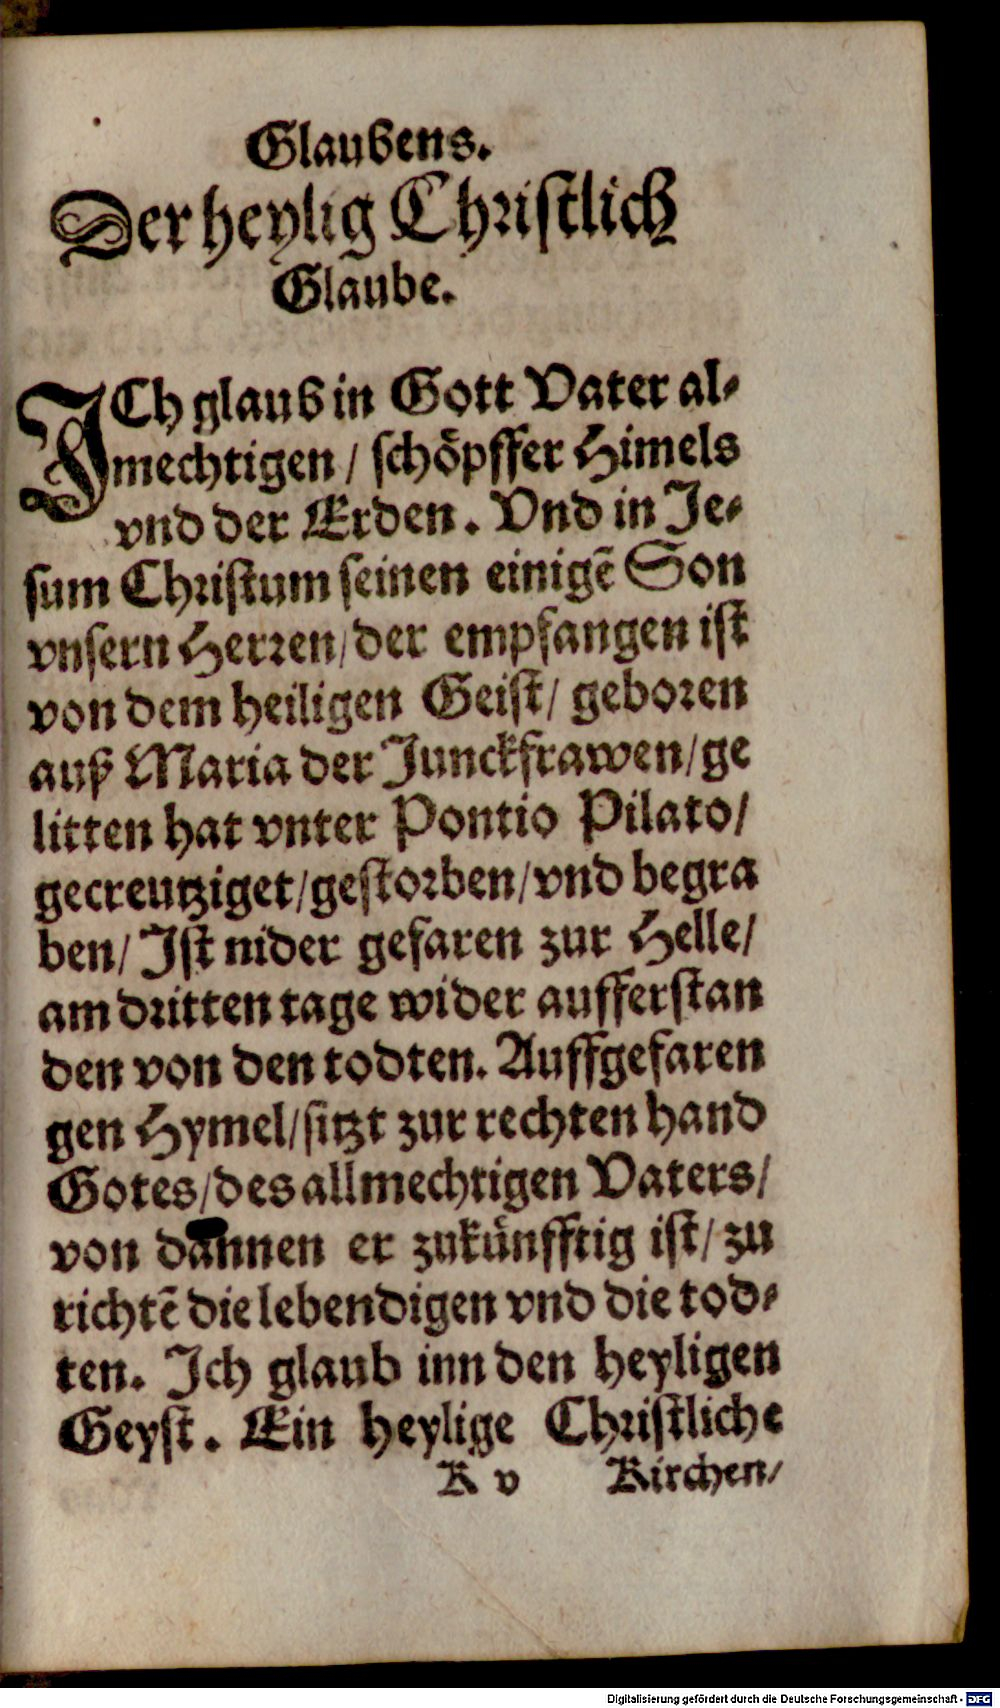 Glaubens.
Der heylig Christlich
Glaube.
ICh glaub in Gott Vater al⸗
mechtigen / schöpffer Himels
vnd der Erden. Vnd in Je⸗
sum Christum seinen einigẽ Son
vnsern Herren / der empfangen ist
von dem heiligen Geist / geboren
auß Maria der Junckfrawen / ge
litten hat vnter Pontio Pilato /
gecreutziget / gestorben / vnd begra
ben / Ist nider gefaren zur Helle /
am dritten tage wider aufferstan
den von den todten. Auffgefaren
gen Hymel / sitzt zur rechten hand
Gotes / des allmechtigen Vaters /
von dannen er zukünfftig ist / zu
richtẽ die lebendigen vnd die tod⸗
ten. Ich glaub inn den heyligen
Geyst. Ein heylige Christliche
K v Kirchen /
Digitalisierung gefördert durch die Deutsche Forschungsgemeinschaft - DFG